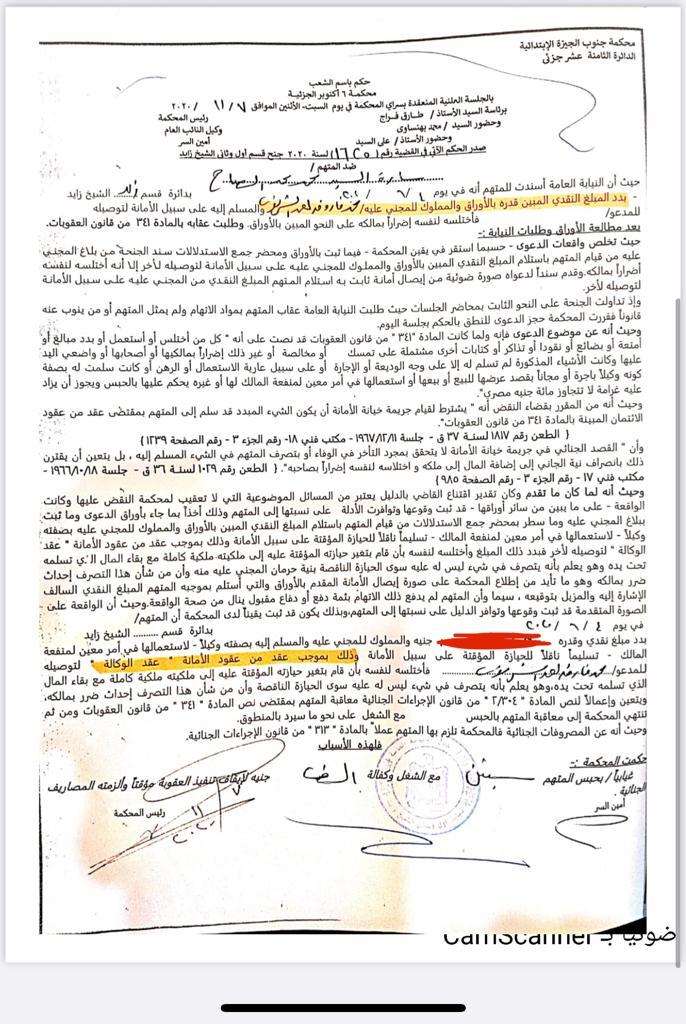 محكمة جنوب الجيزة الإبتدائية
الدائرة الثامنة عشر جزئي
حكم باسم الشعب
محكمة ٦ أكتوبر الجزئية
بالجلسة العلنية المنعقدة بسراي المحكمة في يوم السبت-الأثنين الموافق ٧ / ١١ / ٢٠٢٠
برئاسة السيد الأستاذ / طارق فراج رئيس المحكمة
وحضور السيد / مجد بهنساوي وكيل النائب العام
وحضور الأستاذ / على السيد أمين السر
صدر الحكم الآتي في القضية رقم ( ) لسنة ٢٠٢٠ جنح قسم أول وثاني الشيخ زايد
ضد المتهم /
حيث أن النيابة العامة أسندت للمتهم أنه في يوم بدائرة قسم زايد الشيخ زايد
- بدد المبلغ النقدي المبين قدره بالأوراق والمملوك للمجني عليه/ والمسلم إليه على سبيل الأمانة لتوصيله
للمدعو/ فأختلسه لنفسه إضراراً بمالكه على النحو المبين بالأوراق. وطلبت عقابه بالمادة ٣٤١ من قانون العقوبات.
بعد مطالعة الأوراق وطلبات النيابة :-
حيث تخلص واقعات الدعوى - حسبما استقر في يقين المحكمة - فيما ثبت بالأوراق ومحضر جمع الاستدلالات سند الجنحة من بلاغ المجني
عليه من قيام المتهم باستلام المبلغ النقدي المبين بالأوراق والمملوك للمجني عليه على سبيل الأمانة لتوصيله لأخر إلا أنه أختلسه لنفسه
أضراراً بمالكه.وقدم سنداً لدعواه صورة ضوئية من إيصال أمانة ثابت به استلام المتهم المبلغ النقدي من المجني عليه على سبيل الأمانة
لتوصيله لأخر.
وإذ تداولت الجنحة على النحو الثابت بمحاضر الجلسات حيث طلبت النيابة العامة عقاب المتهم بمواد الاتهام ولم يمثل المتهم أو من ينوب عنه
قانوناً فقررت المحكمة حجز الدعوى للنطق بالحكم بجلسة اليوم.
وحيث أنه عن موضوع الدعوى فإنه ولما كانت المادة "٣٤١" من قانون العقوبات قد نصت على أنه " كل من أختلس أو أستعمل أو بدد مبالغ أو
أمتعة أو بضائع أو نقوداً أو تذاكر أو كتابات أخرى مشتملة على تمسك أو مخالصة أو غير ذلك إضراراً بمالكيها أو أصحابها أو واضعي اليد
عليها وكانت الأشياء المذكورة لم تسلم له إلا على وجه الوديعة أو الإجارة أو على سبيل عارية الاستعمال أو الرهن أو كانت سلمت له بصفة
كونه وكيلاً بأجرة أو مجاناً بقصد عرضها للبيع أو بيعها أو استعمالها في أمر معين لمنفعة المالك لها أو غيره يحكم عليها بالحبس ويجوز أن يزاد
عليه غرامة لا تتجاوز مائة جنيه مصري".
وحيث أنه من المقرر بقضاء النقض أنه " يشترط لقيام جريمة خيانة الأمانة أن يكون الشيء المبدد قد سلم إلى المتهم بمقتضى عقد من عقود
الائتمان المبينة بالمادة ٣٤١ من قانون العقوبات".
{ الطعن رقم ١٨١٧ لسنة ٣٧ ق - جلسة ١٩٦٧/١٢/١١ - مكتب فني ١٨- رقم الجزء ٣ - رقم الصفحة ١٢٣٩ }
وأن " القصد الجنائي في جريمة خيانة الأمانة لا يتحقق بمجرد التأخر في الوفاء أو بتصرف المتهم في الشيء المسلم إليه ، بل يتعين أن يقترن
ذلك بانصراف نية الجاني إلى إضافة المال إلى ملكه و اختلاسه لنفسه إضراراً بصاحبه". { الطعن رقم ١٠٢٩ لسنة ٣٦ ق - جلسة ١٩٦٦/١٠/١٨
مكتب فني ١٧ - رقم الجزء ٣ - رقم الصفحة ٩٨٥ }
وحيث أنه لما كان ما تقدم وكان تقدير اقتناع القاضي بالدليل يعتبر من المسائل الموضوعية التي لا تعقيب لمحكمة النقض عليها وكانت
الواقعة - على ما يبين من سائر أوراقها - قد ثبت وقوعها وتوافرت الأدلة على نسبتها إلى المتهم وذلك أخذاً بما جاء بأوراق الدعوى وما ثبت
ببلاغ المجني عليه وما سطر بمحضر جمع الاستدلالات من قيام المتهم باستلام المبلغ النقدي المبين بالأوراق والمملوك للمجني عليه بصفته
وكيلاً - لاستعمالها في أمر معين لمنفعة المالك - تسليماً ناقلاً للحيازة المؤقتة على سبيل الأمانة وذلك بموجب عقد من عقود الأمانة " عقد
الوكالة " لتوصيله لأخر فبدد ذلك المبلغ وأختلسه لنفسه بأن قام بتغير حيازته المؤقتة عليه إلى ملكيته ملكية كاملة مع بقاء المال الذي تسلمه
تحت يده وهو يعلم بأنه يتصرف في شيء ليس له عليه سوى الحيازة الناقصة بنية حرمان المجني عليه منه وأن من شأن هذا التصرف إحداث
ضرر بمالكه وهو ما تأيد من إطلاع المحكمة على صورة إيصال الأمانة المقدم بالأوراق والتي أستلم بموجبه المتهم المبلغ النقدي السالف
الإشارة إليه والمزيل بتوقيعه ، سيما وأن المتهم لم يدفع ذلك الاتهام بثمة دفع أو دفاع مقبول ينال من صحة الواقعة.وحيث أن الواقعة على
الصورة المتقدمة قد ثبت وقوعها وتوافر الدليل على نسبتها إلى المتهم،وبذلك يكون قد ثبت يقيناً لدى المحكمة أن المتهم/
في يوم ٤ / ٦ / ٢٠٢٠ بدائرة قسم ........... الشيخ زايد
بدد مبلغ نقدي وقدره جنيه والمملوك للمجني عليه والمسلم إليه بصفته وكيلاً - لاستعمالها في أمر معين لمنفعة
المالك - تسليماً ناقلاً للحيازة المؤقتة على سبيل الأمانة وذلك بموجب عقد من عقود الأمانة " عقد الوكالة " لتوصيله
للمدعو/ فأختلسه لنفسه بأن قام بتغير حيازته المؤقتة عليه إلى ملكيته ملكية كاملة مع بقاء المال
الذي تسلمه تحت يده،وهو يعلم بأنه يتصرف في شيء ليس له عليه سوى الحيازة الناقصة وأن من شأن هذا التصرف إحداث ضرر بمالكه،
ويتعين وإعمالاً لنص المادة "٢/٣٠٤" من قانون الإجراءات الجنائية معاقبة المتهم بمقتضى نص المادة " ٣٤١" من قانون العقوبات ومن ثم
تنتهي المحكمة إلى معاقبة المتهم بالحبس مع الشغل على نحو ما سيرد بالمنطوق.
وحيث أنه عن المصروفات الجنائية فالمحكمة تلزم بها المتهم عملاً بالمادة " ٣١٣" من قانون الإجراءات الجنائية.
فلهذه الأسباب
حكمت المحكمة :-
غيابياً / بحبس المتهم سنتين مع الشغل وكفالة جنيه لإيقاف تنفيذ العقوبة مؤقتاً وألزمته المصاريف
الجنائية
أمين السر رئيس المحكمة
ضوئيا بـ CamScanner